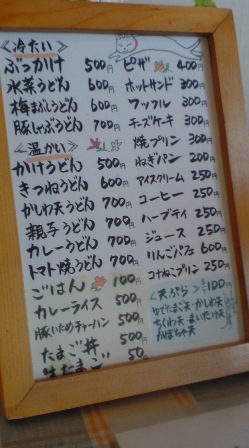 <冷たい>
ぶっかけ 500円
水菜うどん 600円
梅まぶしうどん 600円
豚しゃぶうどん 700円
<温かい>
かけうどん 500円
きつねうどん 600円
かしわ天うどん 700円
親子うどん 700円
カレーうどん 700円
トマト焼うどん 700円
ごはん 100円
カレーライス 500円
豚いためチャーハン 500円
たまご丼 500円
生たまご 50
ピザ 400円
ホットサンド 300円
ワッフル 300円
チーズケーキ 300円
焼プリン 300円
ねぎパン 200円
アイスクリーム 250円
コーヒー 250円
ハーブティ 250円
ジュース 250円
りんごパフェ 600円
コナねこプリン 250円
<天ぷら> 100円
ゆでたまご天・かしわ天
ちくわ天・まいたけ天
かぼちゃ天